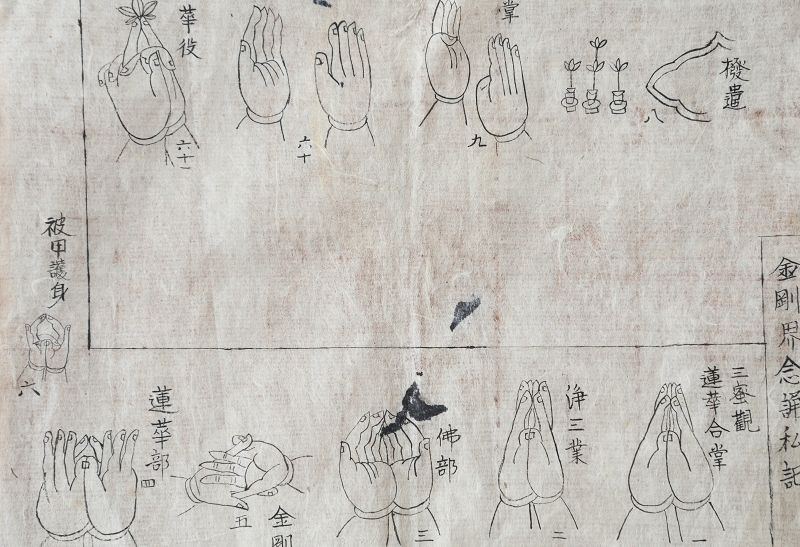 金剛界念誦私記
三密觀
蓮華合掌
一
淨三業
二
佛部
三
蓮華部
四
金剛
五
被甲護身
六
撥遣
八
掌
九
六十
華役
六十一